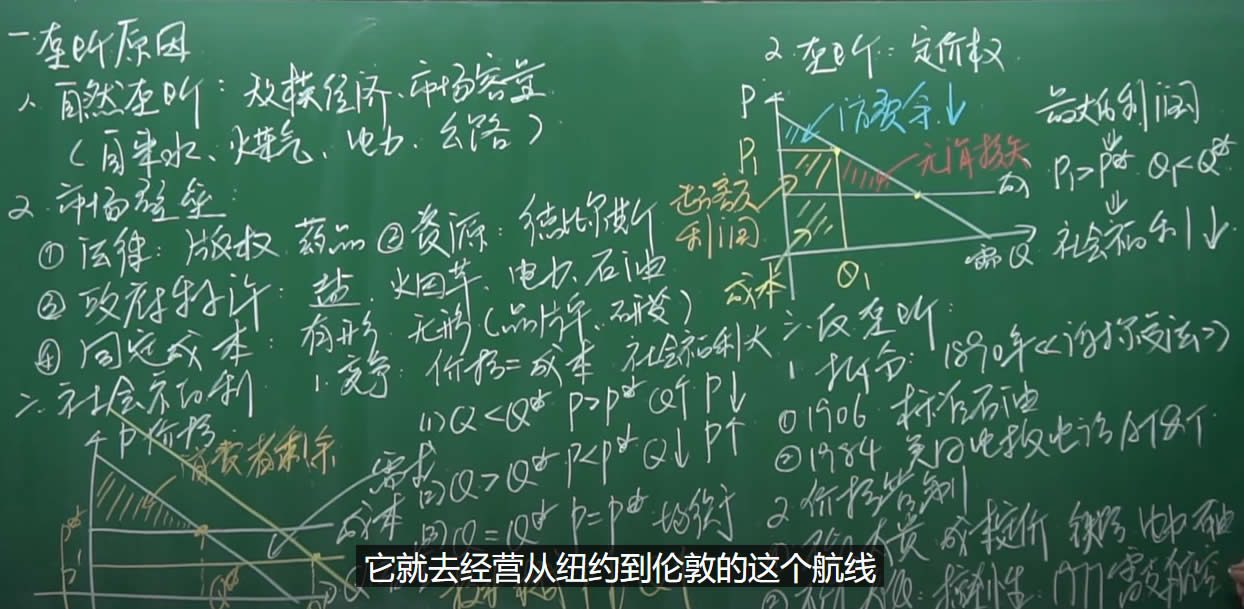 一.垄断原因
1. 自然垄断: 规模经济、市场容量
(自来水、煤气、电力、公路)
2. 市场壁垒:
① 法律: 版权 药品 ② 资源: 德比尔斯
③ 政府特许: 盐、火田草、电力、石油
④ 固定成本: 有形 无形(品牌、研发)
二.社会福利 1.竞争: 价格=成本 社会福利大
(1) Q<Q* P>P* Q↑ P↓
(2) Q>Q* P<P* Q↓ P↑
(3) Q=Q* P=P* 均衡
P 价格
消费者剩余
需求
成本
P*
Q*
2.垄断: 定价权
P
消费余↓
P1
无谓损失
超额
利润
成本
Q1
需 Q
最大的利润
P1>P* Q1<Q*
社会福利↓
三.反垄断:
1 拆分: 1890年《谢尔曼法》
① 1906 标准石油
② 1984 美国电报电话 AT&T 8个
2 价格管制
成本定价 铁路 电力 石油
它就去经营从纽约到伦敦的这个航线